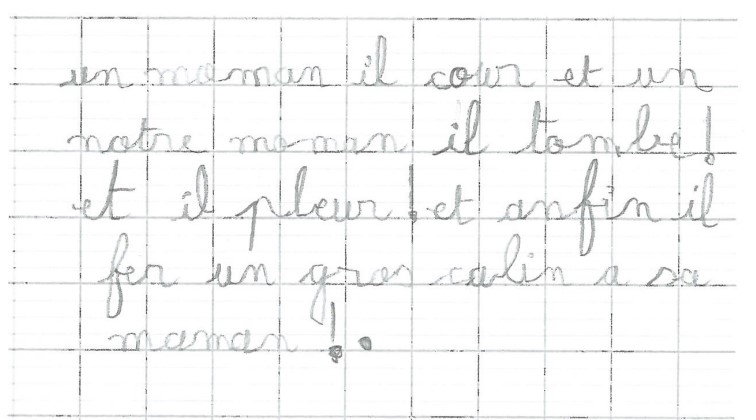 un moman il cour et un
notre moman il tombe!
et il pleur! et anfin il
fer un gros calin a sa
maman!.